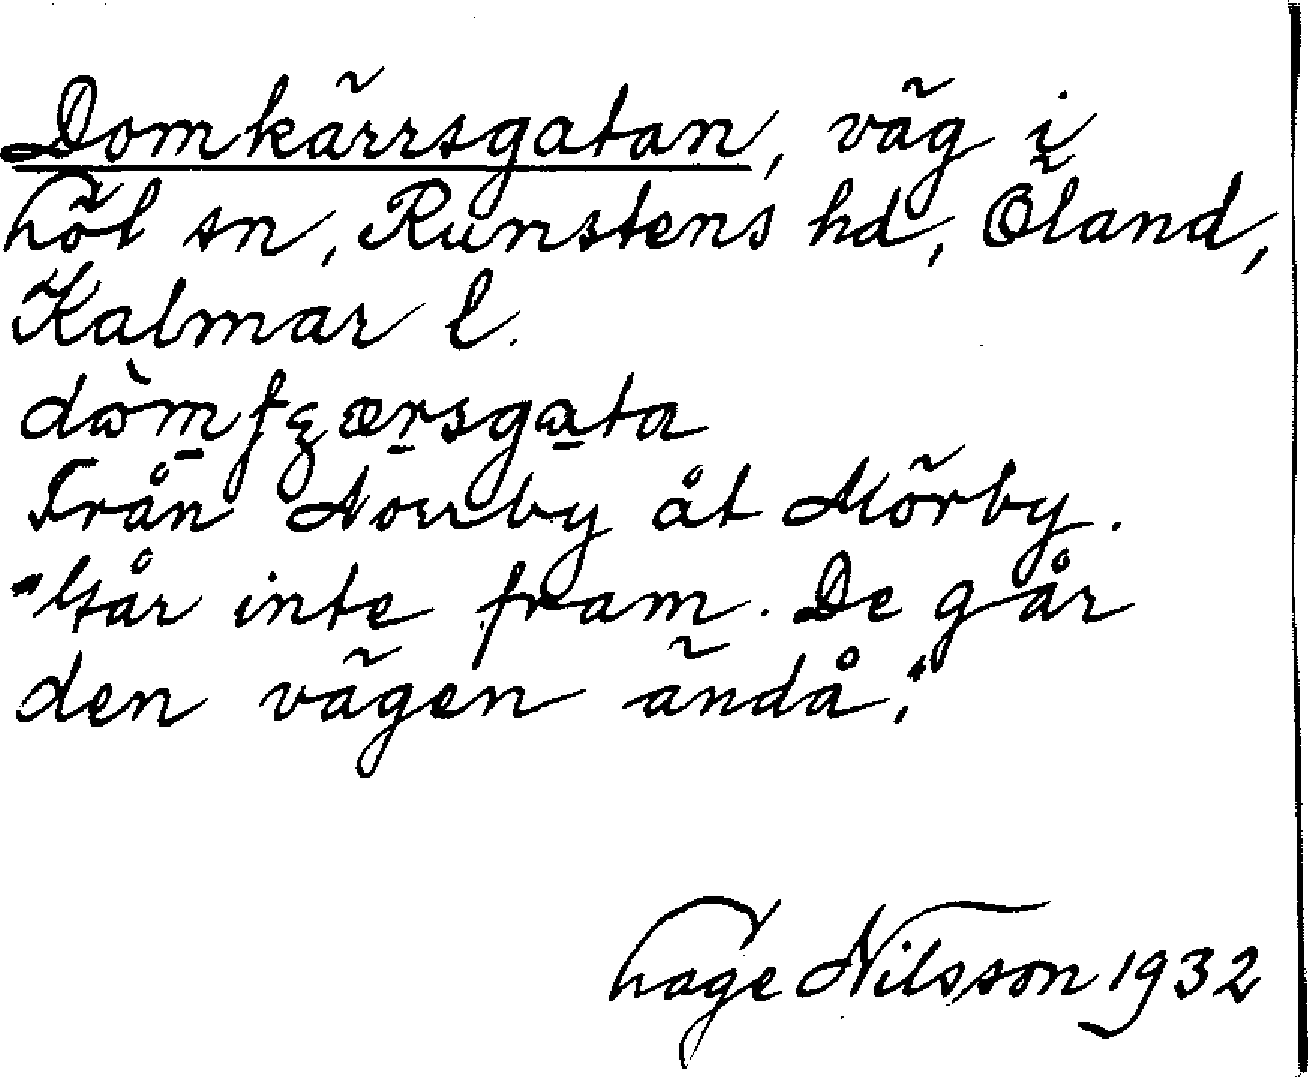 Domkärrsgatan, väg i
Löt sn, Runstens hd, Öland,
Kalmar l.
Från Norrby åt Mörby.
"Går inte fram. De går
den vägen ändå."
Hage Nilsson 1932